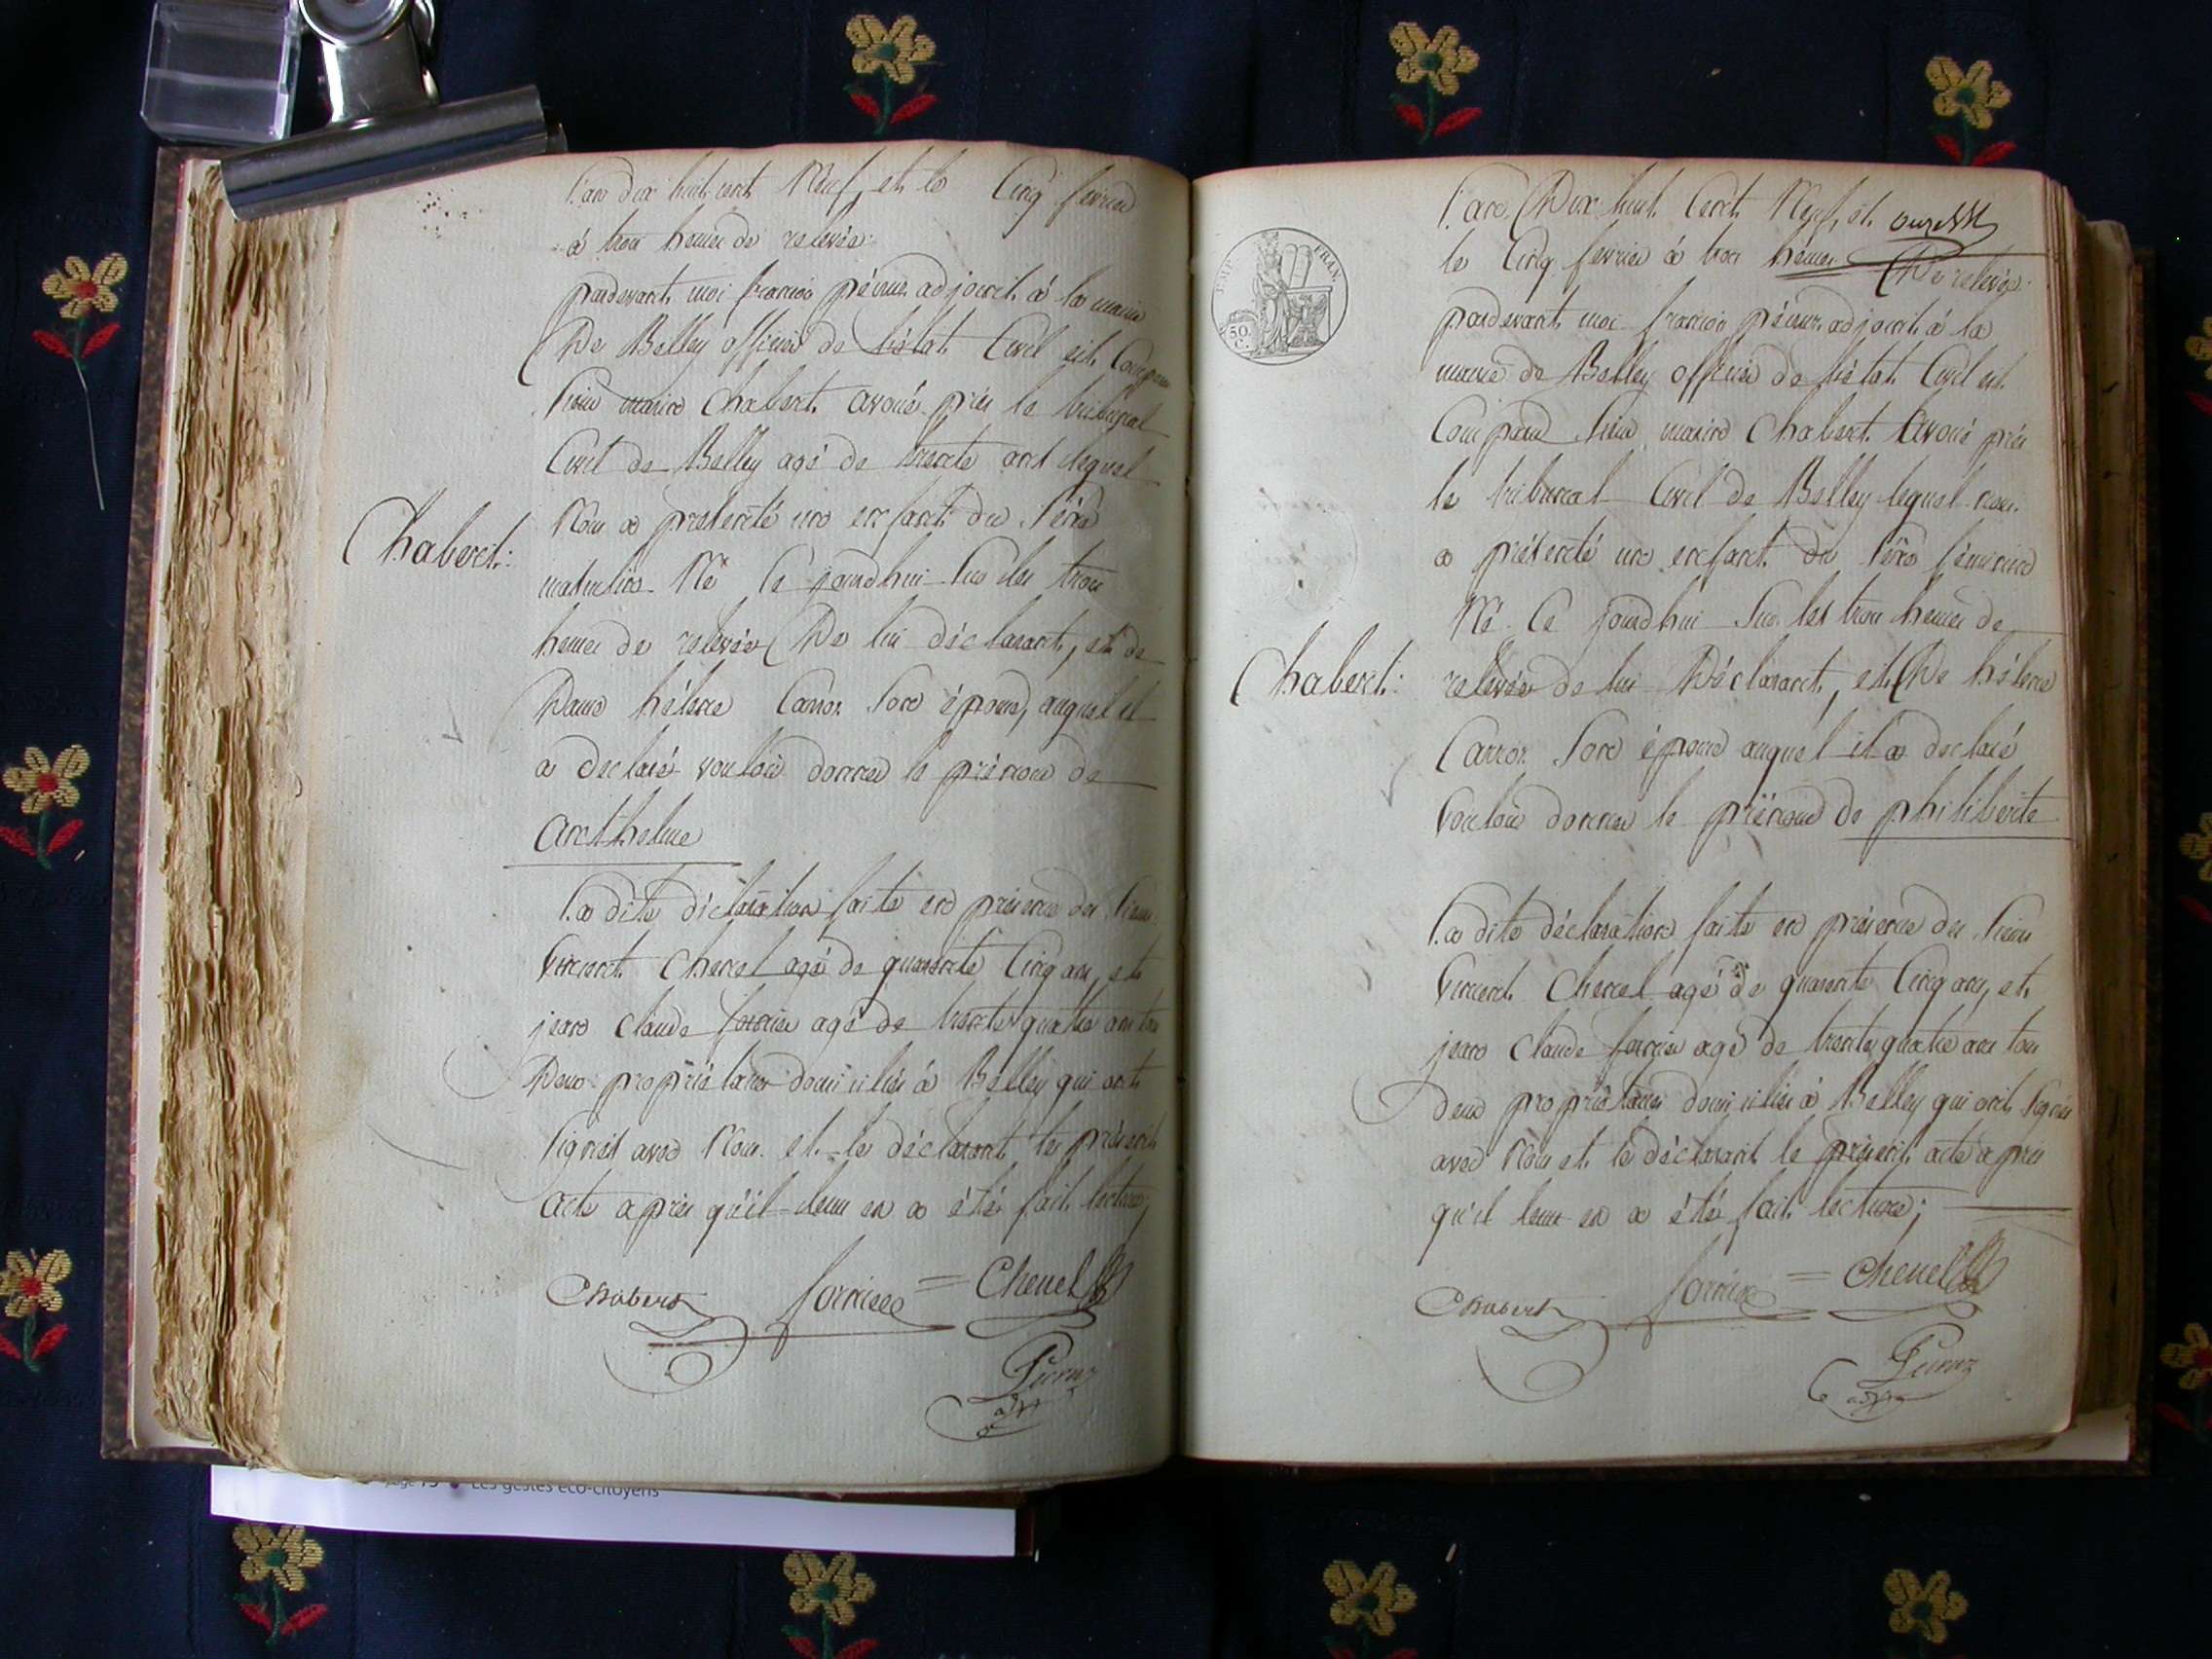 L'an dix huit cent Neuf, et le Cinq fevrier
à trois heures de relevée
pardevant moi francois péirus adjoint à la mairie
De Belley officier de l'état Civil est Comparu
Sieur marin Chabert avoué près le tribunal
Civil de Belley agé de trente ans lequel
Nous a présenté un enfant du Séxe
Chabert:
masculin Né Ce jourdhui Sur les trois
heures de relevée De lui déclarant, et de
Dame hélene Carron Son épouse, auquel il
a déclaré vouloir donner le prénom de
Anthelme
La dite déclaration faite en présence des Sieurs
Vincent Chenel agé de quarante Cinq ans, et
jean claude forrier agé de trente quatre ans tous
Deux propriétaires domiciliés à Belley qui ont
Signés avec Nous et le déclarant le présent
acte après qu'il leur en a été fait lecture;
Chabert forrier = Chenel
L'an Dix huit Cent Neuf, et
le Cinq fevrier à trois heures
De relevée
pardevant moi francois péirus adjoint à la
mairie de Belley officier de l'état Civil est
Comparu Sieur marin Chabert Avoué près
le tribunal Civil de Belley lequel nous
a présenté un enfant du Séxe féminin
Né Ce jourdhui Sur les trois heures de
Chabert:
relevée de lui Déclarant, et De hélene
Carron Son épouse auquel il a déclaré
Vouloir donner le prénom de philiberte
La dite déclaration faite en présence des Sieurs
Vincent Chenel agé de quarante Cinq ans, et
jean Claude forrier agé de trente quatre ans tous
deux propriétaires domiciliés à Belley qui ont Signés
avec Nous et le déclarant le présent acte après
qu'il leur en a été fait lecture;
Chabert forrier = Chenel
EMP. FRAN.
50 C.
page 15 • Les gestes éco-citoyens